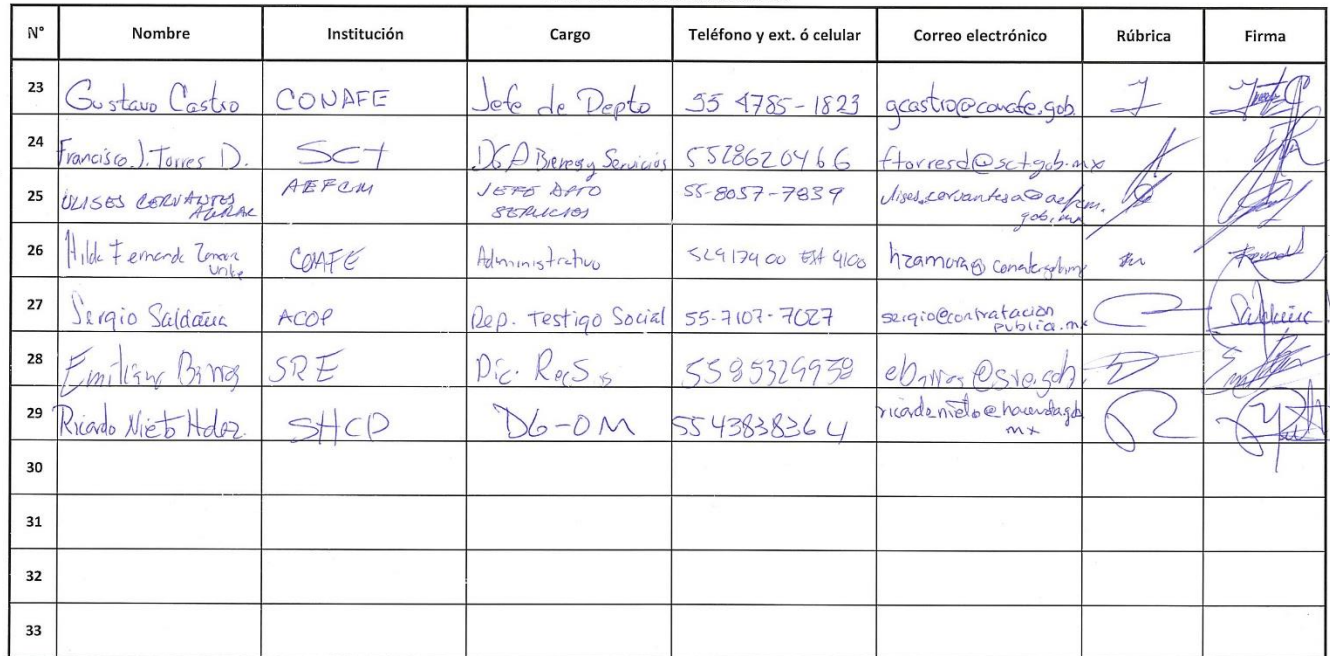 N° Nombre Institución Cargo Teléfono y ext. ó celular Correo electrónico Rúbrica Firma
23 Gustavo Castro CONAFE Jefe de Depto 55 4785-1823 gcastro@conafe.gob.
24 Francisco J. Torres D. SCT DGA Bienes y Servicios 5528620466 ftorresd@sct.gob.mx
25 ULISES CERVANTES AEFCM JEFE DPTO 55-8057-7839 ulises.cervantesa@aefcm.
SERVICIOS gob.mx
26 Hilda Fernanda Zamora CONAFE Administrativo EXT 9100
Uribe
27 Sergio Saldaña ACOP Rep. Testigo Social 55-7107-7627 sergio@contratacion
publica.mx
28 SRE 5585329938
29 Ricardo Nieto Hdez. SHCP DG-OM 5543838364 ricardo_nieto@hacienda.gob
mx
30
31
32
33